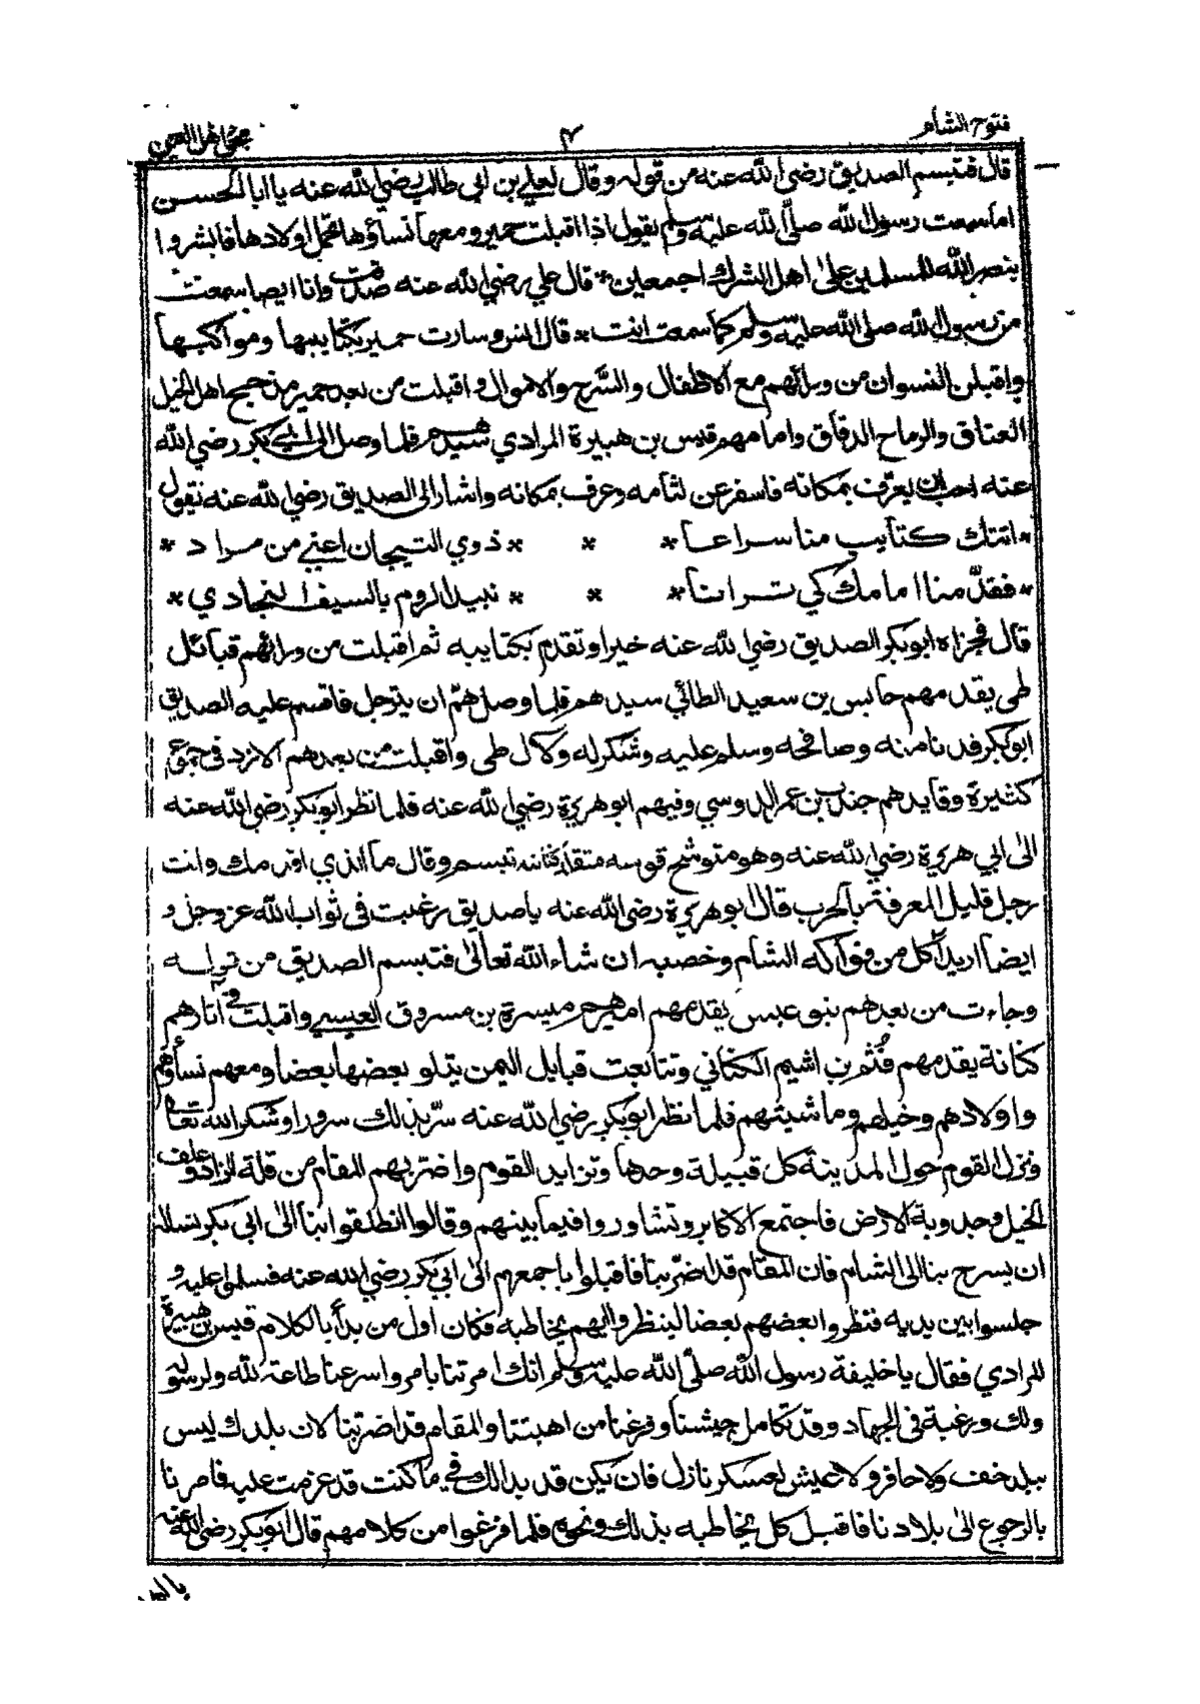 فتوح الشام
٤
مجئ اهل اليمن
قال فتبسم الصديق رضي الله عنه من قوله وقال لعلي بن ابي طالب رضي الله عنه يا ابا الحسن
اما سمعت رسول الله صلى الله عليه وسلم يقول اذا اقبلت حمير ومعها نساؤها تحمل اولادها فابشروا
بنصر الله للمسلمين على اهل الشرك اجمعين * قال علي رضي الله عنه صدقت وانا ايضا سمعت
من رسول الله صلى الله عليه وسلم كما سمعت انت * قال انس وسارت حمير بكتايبها ومواكبها
واقبلن النسوان من ورائهم مع الاطفال والسرح والاموال واقبلت من بعد حمير مذحج اهل الخيل
العتاق والرماح الدقاق وامامهم قيس بن هبيرة المرادي سيدهم فلما وصل الى ابي بكر رضي الله
عنه احب ان يعرف بمكانه فاسفر عن لثامه وعرف بمكانه واشار الى الصديق رضي الله عنه يقول
* اتتك كتايب منا سراعا * * * ذوي التيجان اعني من مراد *
* فقدّمنا امامك كي ترانا * * * نبيد الروم بالسيف النجادي *
قال فجزاه ابو بكر الصديق رضي الله عنه خيرا وتقدم بكتايبه ثم اقبلت من ورائهم قبائل
طي يقدمهم حابس بن سعيد الطائي سيدهم فلما وصل همّ ان يترجل فاقسم عليه الصديق
ابو بكر فدنا منه وصافحه وسلم عليه وشكر له ولآل طي واقبلت من بعدهم الازد في جموع
كثيرة وقايدهم جندب بن عمر الدوسي وفيهم ابو هريرة رضي الله عنه فلما نظر ابو بكر رضي الله عنه
الى ابي هريرة رضي الله عنه وهو متوشح قوسه متقلد كنانته تبسم وقال ما الذي اقدمك وانت
رجل قليل المعرفة بالحرب قال ابو هريرة رضي الله عنه يا صديق رغبت في ثواب الله عز وجل و
ايضا اريد اكل من فواكه الشام وخصبه ان شاء الله تعالى فتبسم الصديق من قوله
وجاءت من بعدهم بنو عبس يقدمهم اميرهم ميسرة بن مسروق العبسي واقبلت في آثارهم
كنانة يقدمهم قُثم بن اشيم الكناني وتتابعت قبايل اليمن يتلو بعضها بعضا ومعهم نساؤهم
واولادهم وخيلهم وماشيتهم فلما نظر ابو بكر رضي الله عنه سرّ بذلك سرورا وشكر الله تعا
ونزل القوم حول المدينة كل قبيلة وحدها وتزايد القوم واضرّ بهم المقام من قلة الزاد وعلف
الخيل وجدوبة الارض فاجتمع الاكابر وتشاوروا فيما بينهم وقالوا انطلقوا بنا الى ابي بكر نساله
ان يسرح بنا الى الشام فان المقام قد اضرّ بنا فاقبلوا باجمعهم الى ابي بكر رضي الله عنه فسلموا عليه و
جلسوا بين يديه فنظروا بعضهم بعضا لينظروا ايهم يخاطبه فكان اول من بدأ بالكلام قيس بن هبيرة
المرادي فقال يا خليفة رسول الله صلى الله عليه وسلم انك امرتنا بامر واسرعنا طاعة لله ولرسوله
ولك ورغبة في الجهاد وقد تكامل جيشنا وفرغنا من اهبتنا والمقام قد اضر بنا لان بلدك ليس
ببلد خف ولا حافر ولا عيش لعسكر نازل فان يكن قد بدا لك في ما كنت قد عزمت عليه فامرنا
بالرجوع الى بلادنا فاقبل كل يخاطبه بذلك ونحوه فلما فرغوا من كلامهم قال ابو بكر رضي الله عنه